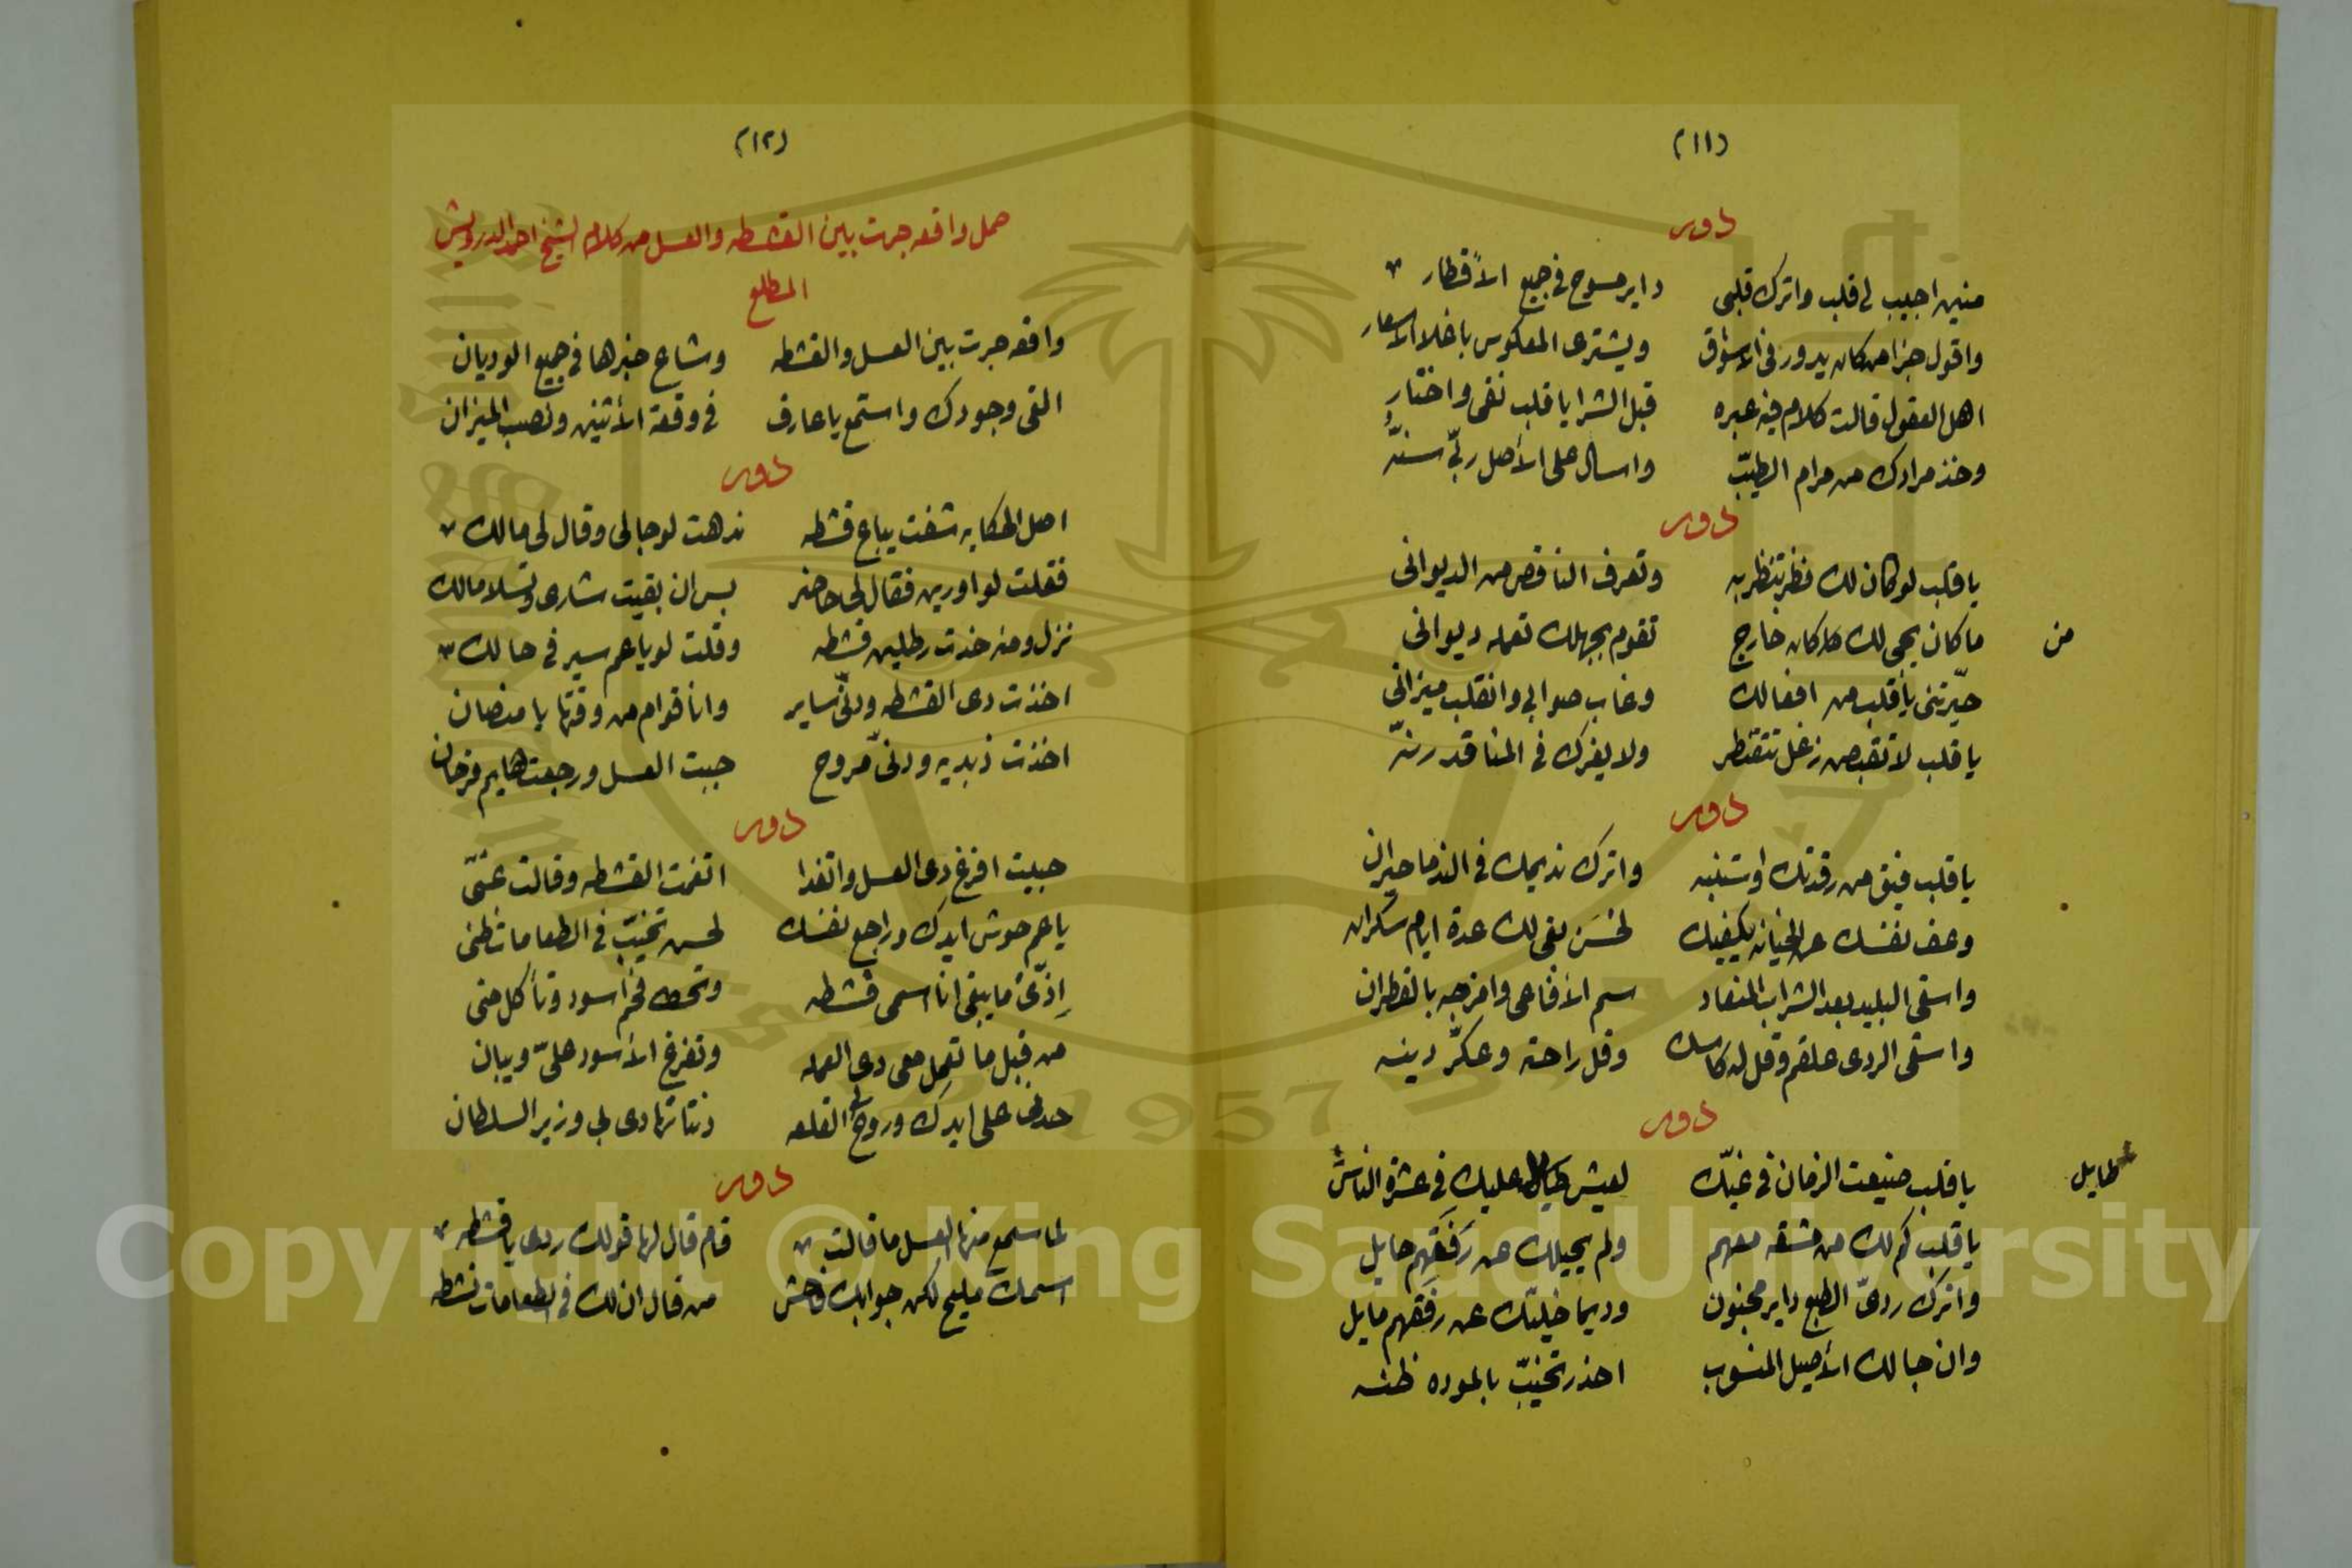 (١١)
دور
منين اجيب لى قلب واترك قلبى داير مسوح فى جميع الأقطار
واقول جزا من كان يدور فى الاسواق ويشترى المعكوس باغلا الاسعار
اهل العقول قالت كلام فيه عبره قبل الشرا يا قلب نقى واختار
وخذ مرادك من مرام الطيّب واسال على الأصل ربّى
دور
يا قلب لو كان لك نظر تنظر به وتعرف الناقص من الديوانى
ما كان يجى لك كان خارج تقوم بجهلك تعمله ديوانى
من
حيّرتنى يا قلب من افعالك وغاب صوابى وانقلب ميزانى
يا قلب لا تقبص زغل تتقنطر ولا يغرك فى المنا قدرنّه
دور
يا قلب فيق من رقدتك واتنبه واترك نديمك فى الندما حيران
وعف نفسك عن الخيانه يكفيك لحسَن بقى لك عدة ايام سكران
واسقى البليد بعد الشراب المعتاد سم الأفاعى وامزجه بالقطران
واسقى الردى علقم وقل له كاسك وقل راحته وعكّر دينه
دور
يا قلب ضيعت الزمان فى غيّك لعيش عليك فى عشرة الناس
طايل
يا قلب كم لك من مشقه معهم ولم يحيلك عن رَفَقهم حايل
واترك ردىّ الطبع داير مجنون وديما خليّك عن رَفَقهم مايل
وان جا لك الأصيل المنسوب احذر تخيّب بالموده ظنه
(١٢)
حمل واقعه جرت بين القشطه والعسل من كلام الشيخ احمد الدرويش
المطلع
واقعه جرت بين العسل والقشطه وشاع خبرها فى جميع الوديان
القى وجودك واستمع يا عارف فى وقعة الأثنين ونصب الميزان
دور
اصل الحكايه شفت بياع قشطه ندهت لو جا لى وقال لى مالك
فقلت لو اورين فقال لى حاضر بس ان بقيت شارى وتسلا مالك
نزل ومنه خدت رطلين قشطه وقلت لو يا عم سير فى حالك
اخذت دى القشطه ودنّى ساير وانا قوام من وقتها يا منصان
اخذت زبديه ودنّى مروح جبت العسل ورجعت هايم فرحان
دور
جبيت افرغ دى العسل واتغدا اتغمت القشطه وقالت عنّى
يا عم حوش ايدك وراجع نفسك لحسن تخيّب فى الطعامات ظنى
اِزىّ ما يبقى انا اسمى قشطه وتحط فحم أسود وتأكل منى
من قبل ما تعمل معى دى العمله وتفرغ الأسود علىّ ويبان
حدنى على ايدك وروح لى القلعه دنتا تهادى بى وزير السلطان
دور
لما سمع منها العسل ما قالت قام قال لها قولك ردى يا قشطه
اسمك مليح لكن جوابك فاحش من قال ان لك فى الطعامات نشطه